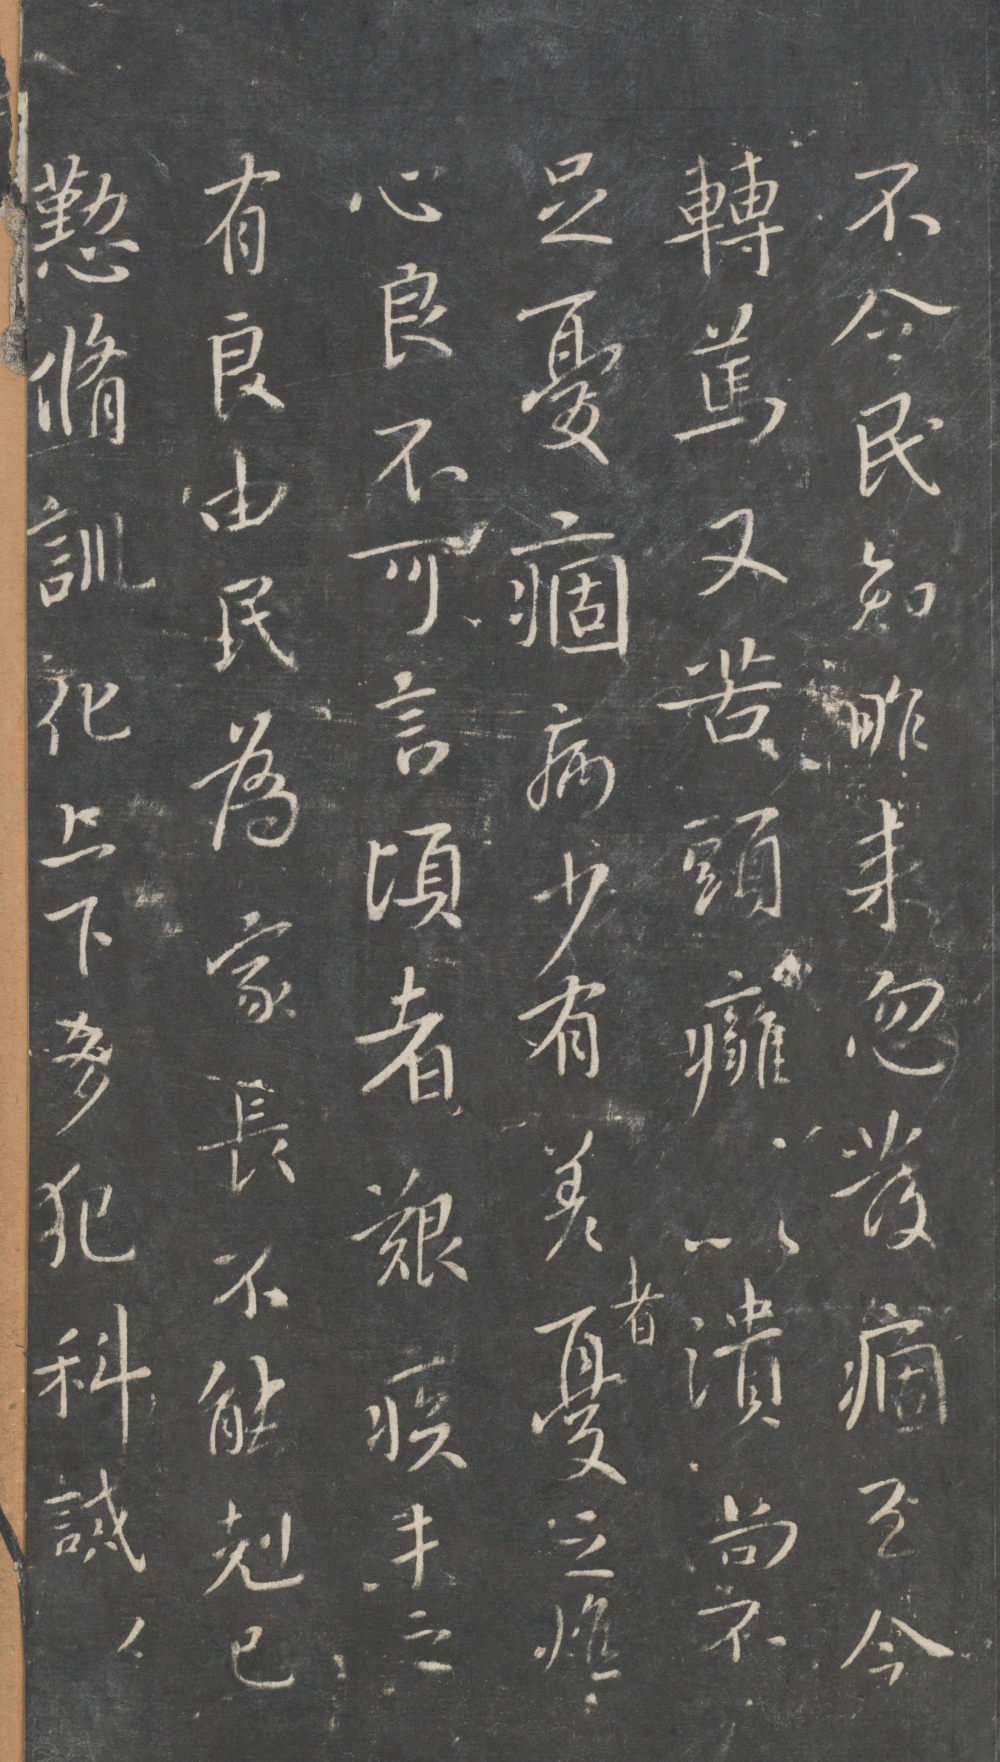 不令民知昨来忽發痼至今
轉篤又苦頭癰〻以潰尚不
足憂痼病少有差者憂之燋
心良不可言頃者艱疾未之
有良由民為家長不能尅己
懃脩訓化上下多犯科誡〻